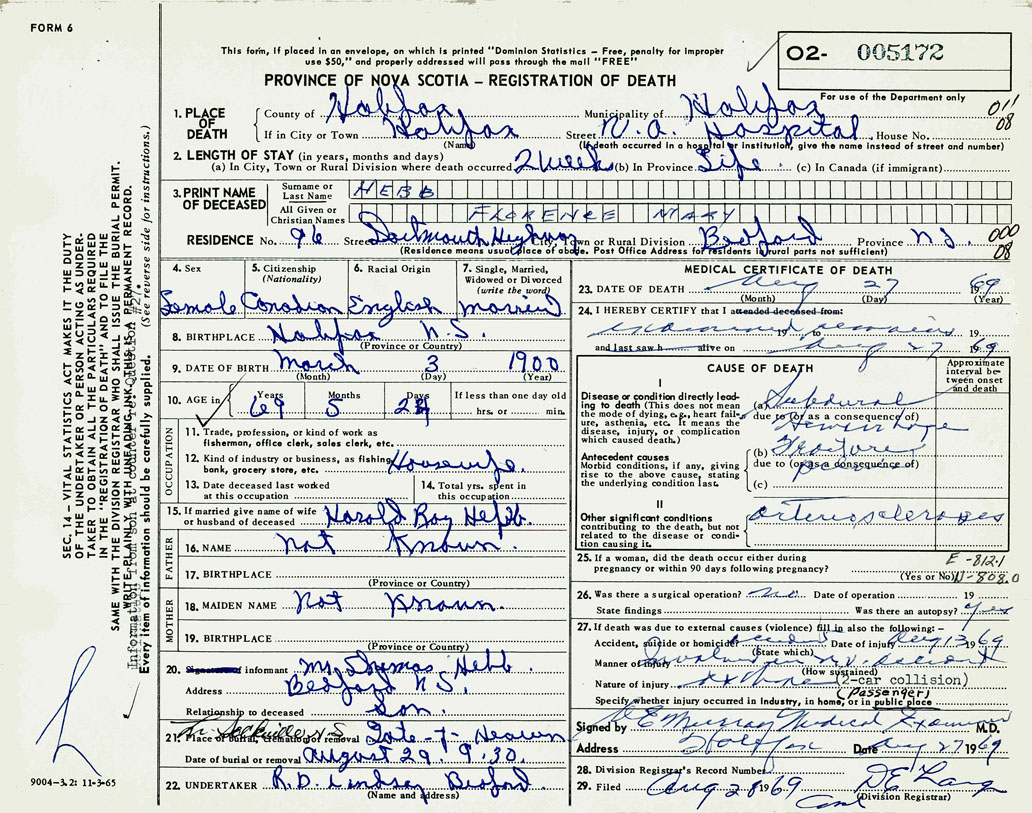 FORM 6
This form, if placed in an envelope, on which is printed "Dominion Statistics – Free, penalty for improper
use $50," and properly addressed will pass through the mail "FREE"
O2- 005172
PROVINCE OF NOVA SCOTIA – REGISTRATION OF DEATH
For use of the Department only
1. PLACE OF DEATH
County of Halifax Municipality of Halifax 011
If in City or Town Halifax Street V.A. Hospital House No. 08
(Name) (If death occurred in a hospital or institution, give the name instead of street and number)
2. LENGTH OF STAY (in years, months and days)
(a) In City, Town or Rural Division where death occurred 2 weeks (b) In Province Life (c) In Canada (if immigrant)
3. PRINT NAME OF DECEASED
Surname or Last Name HEBB
All Given or Christian Names FLORENCE MARY
RESIDENCE No. 96 Street Dartmouth Highway City, Town or Rural Division Bedford Province N.S. 000
(Residence means usual place of abode. Post Office Address for residents in rural parts not sufficient) 08
4. Sex Female
5. Citizenship (Nationality) Canadian
6. Racial Origin English
7. Single, Married, Widowed or Divorced (write the word) Married
8. BIRTHPLACE Halifax N.S.
(Province or Country)
9. DATE OF BIRTH March 3 1900
(Month) (Day) (Year)
10. AGE in Years 69 Months 5 Days 24 If less than one day old hrs. or min.
OCCUPATION
11. Trade, profession, or kind of work as fisherman, office clerk, sales clerk, etc.
12. Kind of industry or business, as fishing, bank, grocery store, etc. Housewife.
13. Date deceased last worked at this occupation
14. Total yrs. spent in this occupation
15. If married give name of wife or husband of deceased Harold Roy Hebb.
FATHER
16. NAME Not Known.
17. BIRTHPLACE
(Province or Country)
MOTHER
18. MAIDEN NAME Not Known.
19. BIRTHPLACE
(Province or Country)
20. informant Mr. Thomas Hebb.
Address Bedford N.S.
Relationship to deceased Son.
21. Place of burial, cremation or removal Gate-7-Heaven
Sackville N.S.
Date of burial or removal August 29. 9.30.
22. UNDERTAKER R.D. Lindsay Bedford.
(Name and address)
MEDICAL CERTIFICATE OF DEATH
23. DATE OF DEATH Aug 27 1969
(Month) (Day) (Year)
24. I HEREBY CERTIFY that I attended deceased from:
examined remains 19 to 19
and last saw h alive on Aug 27 1969
CAUSE OF DEATH
Approximate interval between onset and death
I
Disease or condition directly leading to death (This does not mean the mode of dying, e.g., heart failure, asthenia, etc. It means the disease, injury, or complication which caused death.)
(a) Subdural
due to (or as a consequence of)
Hemorrhage
Antecedent causes
Morbid conditions, if any, giving rise to the above cause, stating the underlying condition last.
(b) Fracture
due to (or as a consequence of)
(c)
II
Other significant conditions contributing to the death, but not related to the disease or condition causing it.
arteriosclerosis
25. If a woman, did the death occur either during pregnancy or within 90 days following pregnancy?
E-812.1
(Yes or No) N-808.0
26. Was there a surgical operation? no Date of operation 19
State findings Was there an autopsy? yes
27. If death was due to external causes (violence) fill in also the following:–
Accident, suicide or homicide? accident Date of injury Aug 13 1969
(State which)
Manner of injury Involved in M.V. accident
(How sustained)
Nature of injury (2-car collision)
(Passenger)
Specify whether injury occurred in Industry, in home, or in public place
Signed by D E Murray Medical Examiner M.D.
Address Halifax Date Aug 27 1969
28. Division Registrar's Record Number
29. Filed Aug 28 1969 D E Lang
(Division Registrar)
9004-3.2: 11-3-65
SEC. 14 – VITAL STATISTICS ACT MAKES IT THE DUTY
OF THE UNDERTAKER OR PERSON ACTING AS UNDERTAKER
TO OBTAIN ALL THE PARTICULARS REQUIRED
IN THE "REGISTRATION OF DEATH" AND TO FILE THE
SAME WITH THE DIVISION REGISTRAR WHO SHALL ISSUE THE BURIAL PERMIT.
WRITE PLAINLY, WITH UNFADING INK, THIS IS A PERMANENT RECORD.
Every item of information should be carefully supplied. (See reverse side for instructions.)